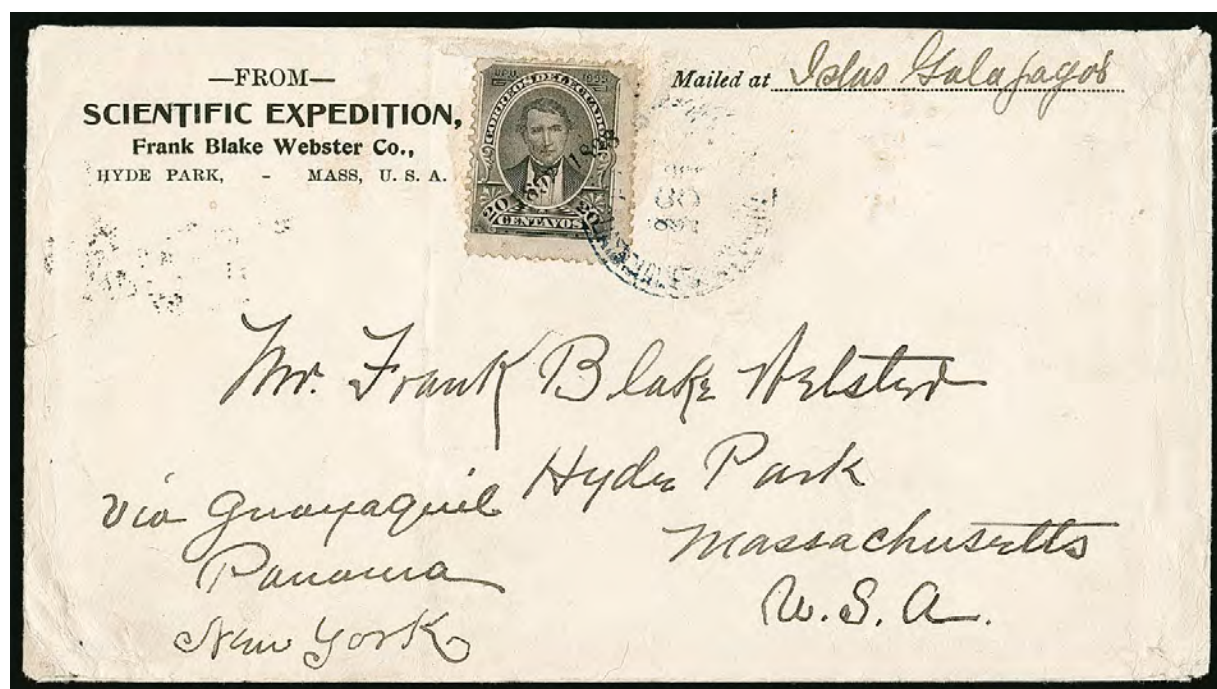 —FROM—
SCIENTIFIC EXPEDITION,
Frank Blake Webster Co.,
HYDE PARK, - MASS, U. S. A.
CORREOS DEL ECUADOR
1897 1898
20 20
CENTAVOS
Mailed at Islas Galapagos
Mr. Frank Blake Webster
Hyde Park
Massachusetts
U. S. A.
via Guayaquil
Panama
New York